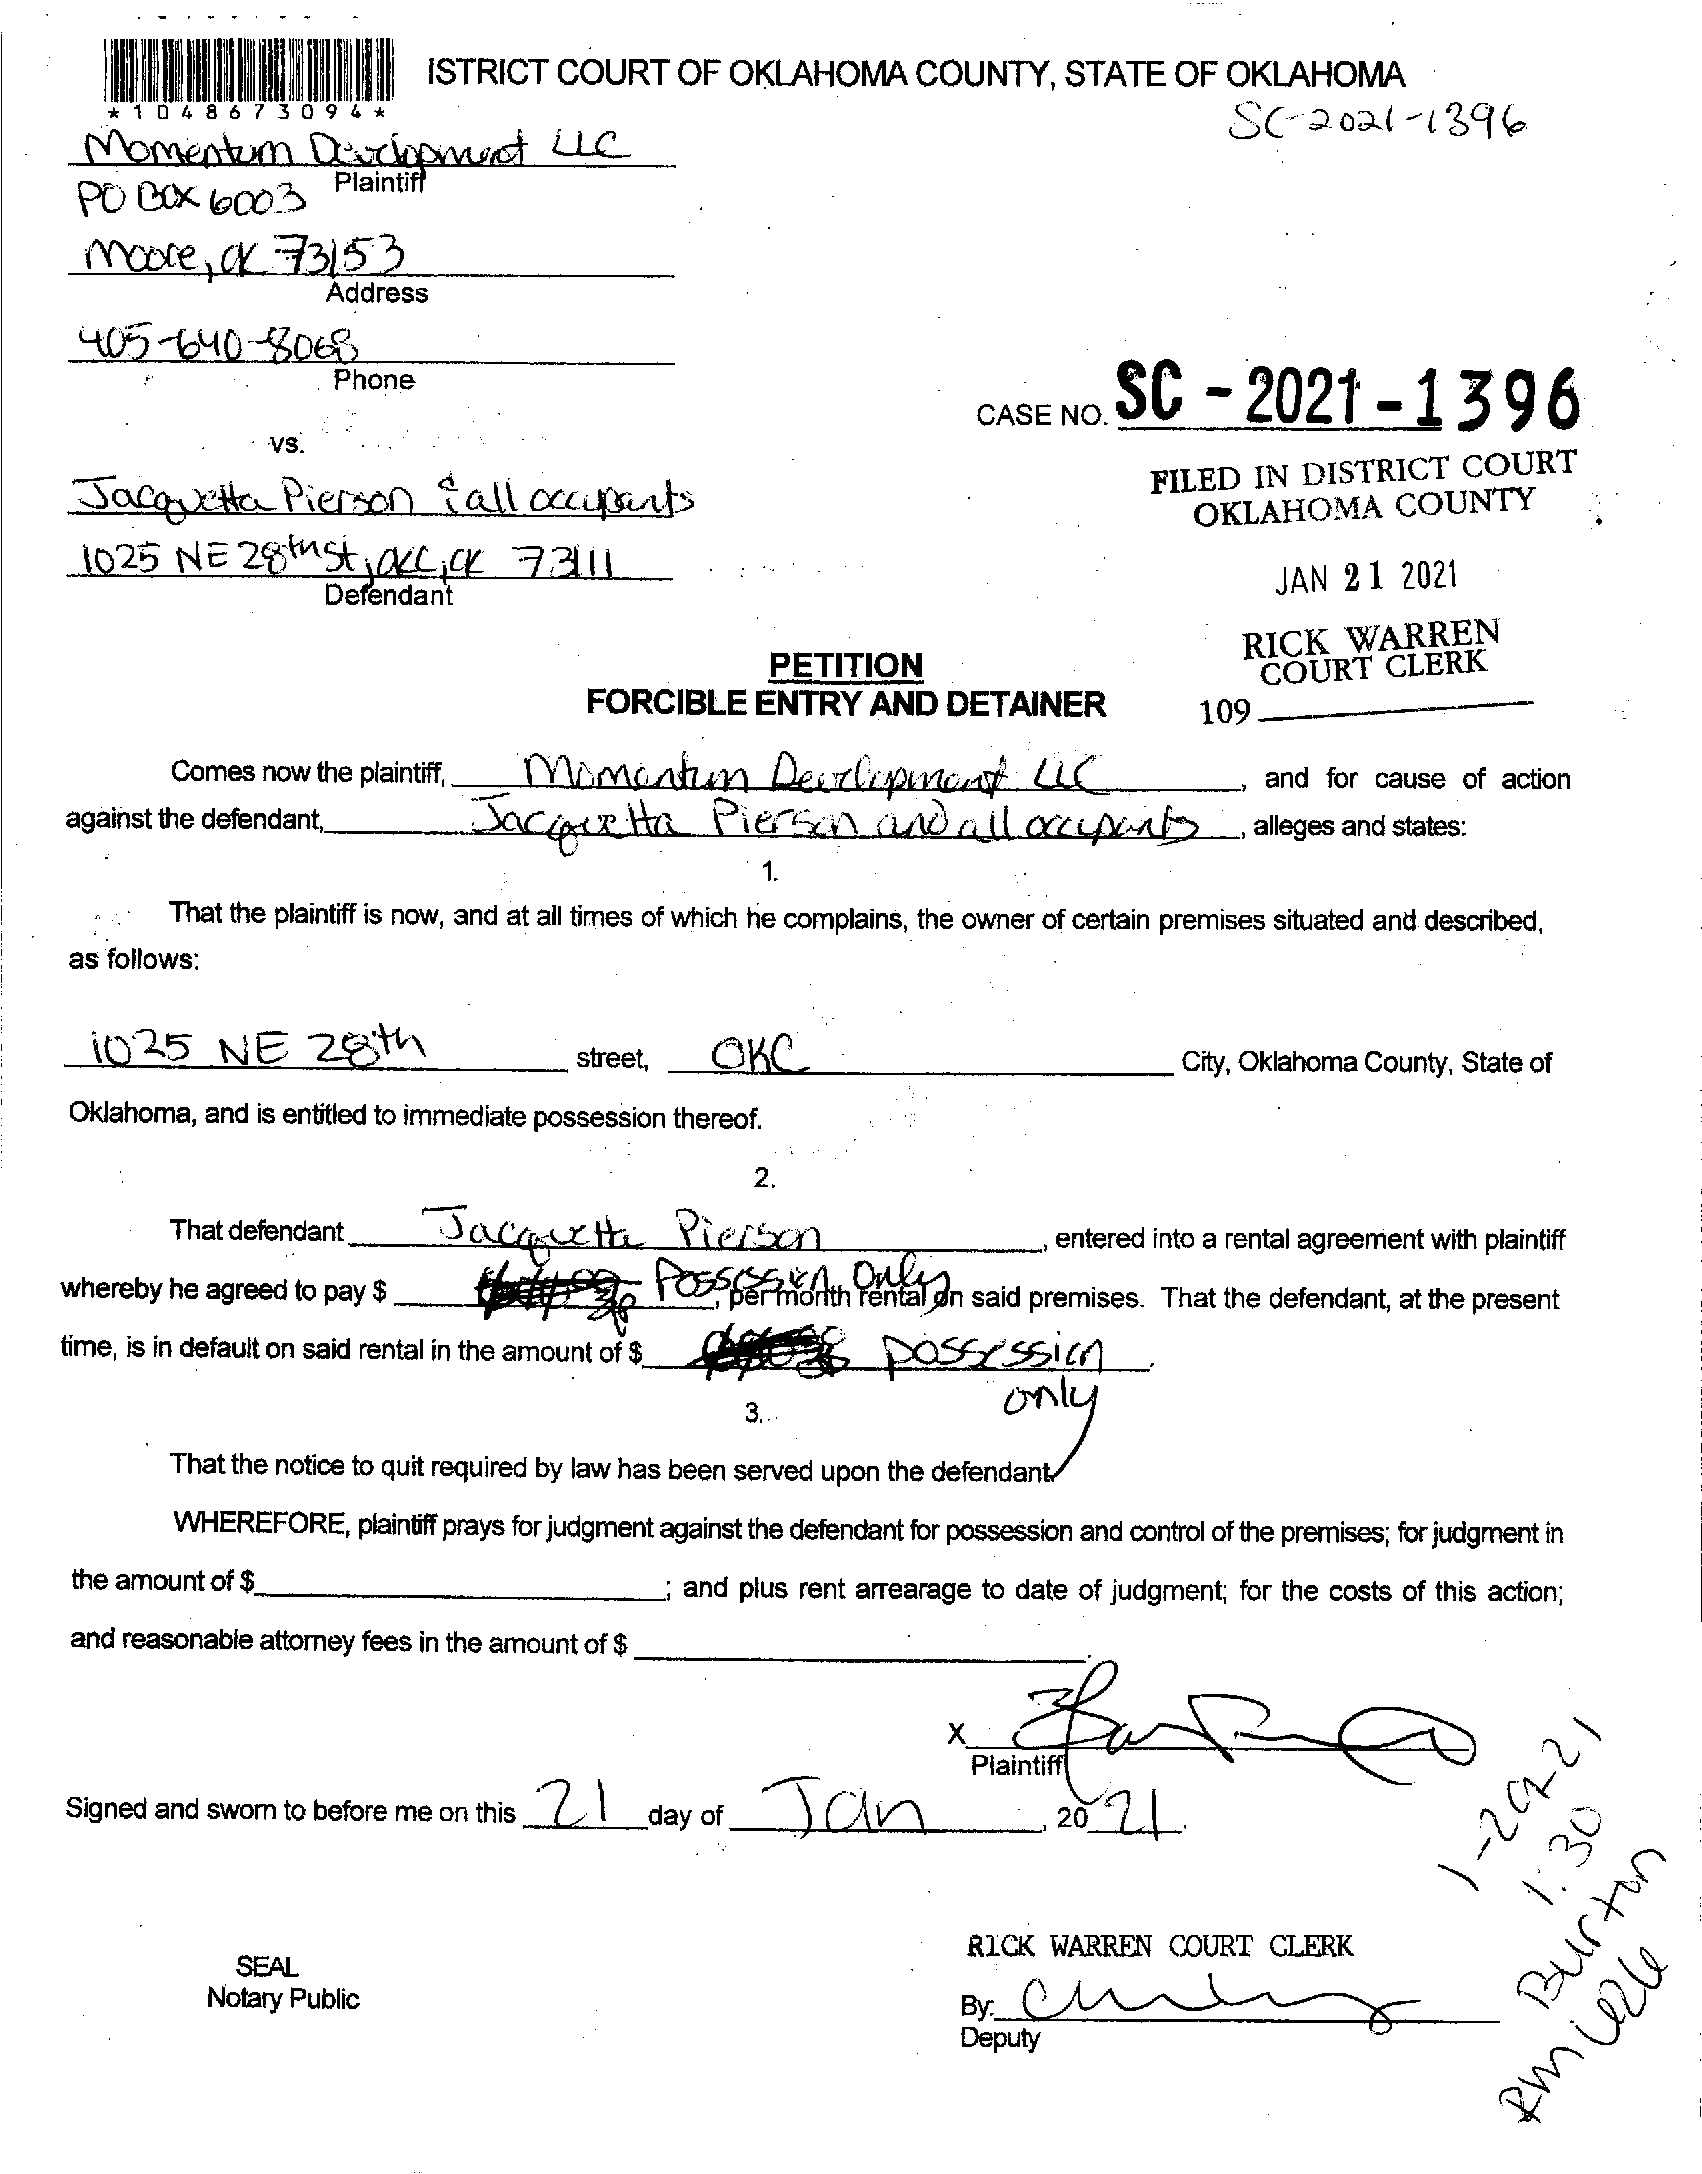 ISTRICT COURT OF OKLAHOMA COUNTY, STATE OF OKLAHOMA
*1048673094*
SC-2021-1396
Momentum Development LLC
Plaintiff
PO Box 6003
Moore, OK 73153
Address
405-640-8068
Phone
CASE NO. SC-2021-1396
vs.
FILED IN DISTRICT COURT
OKLAHOMA COUNTY
Jacquetta Pierson & all occupants
1025 NE 28th St, OKC, OK 73111
Defendant
JAN 21 2021
RICK WARREN
COURT CLERK
109
PETITION
FORCIBLE ENTRY AND DETAINER
Comes now the plaintiff, Momentum Development LLC, and for cause of action
against the defendant, Jacquetta Pierson and all occupants, alleges and states:
1.
That the plaintiff is now, and at all times of which he complains, the owner of certain premises situated and described,
as follows:
1025 NE 28th street, OKC City, Oklahoma County, State of
Oklahoma, and is entitled to immediate possession thereof.
2.
That defendant Jacquetta Pierson, entered into a rental agreement with plaintiff
whereby he agreed to pay $ Possession Only, per month rental on said premises. That the defendant, at the present
time, is in default on said rental in the amount of $ possession only.
3.
That the notice to quit required by law has been served upon the defendant
WHEREFORE, plaintiff prays for judgment against the defendant for possession and control of the premises; for judgment in
the amount of $; and plus rent arrearage to date of judgment; for the costs of this action;
and reasonable attorney fees in the amount of $
X
Plaintiff
Signed and sworn to before me on this 21 day of Jan, 2021.
1-29-21
1:30
Burton
RM
RICK WARREN COURT CLERK
SEAL
Notary Public
By:
Deputy